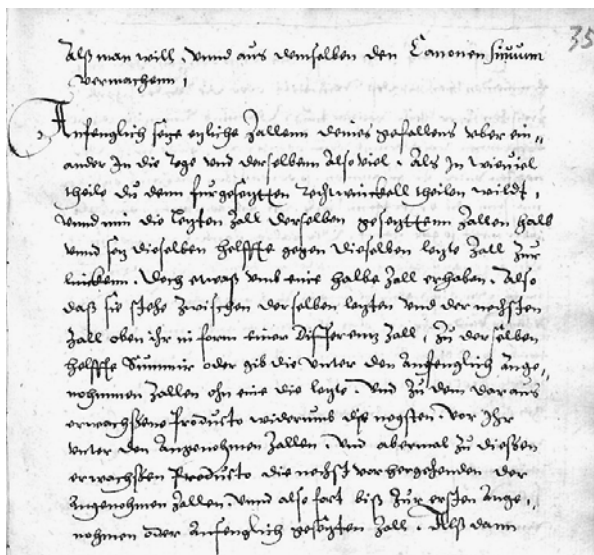 35
Alß man will, vnnd aus demselben den Canonen Sinuum
vermachenn,
Anfenglich setze etzliche Zallenn deines gefallens vber ein,,
ander In die lege vnd derselbenn Also viel. Als In wieuiel
theile du denn furgesetztten Rechtwinckell theilen wildt,
vnnd nim die letzten Zall derselben gesetzttenn Zallen halb
vnnd setz dieselben helffte gegen dieselben letzte Zall zur
linckenn. Doch etwaß vmb eine halbe Zall erhaben. Also
daß sie stehe zwischen derselben letzten vnd der nechsten
Zall oben ihr in form einer Differentz Zall, zu derselben
helffte Summir oder gib die vnter den Anfenglich Ange,,
nohmmen Zallen ohn eine die letzte. Vnd zu dem daraus
erwachssene Producto widerumb die negsten. vor Ihr
vnter den Angenohmen Zallen. Vnd abermal zu diessen
erwachssen Producto die nehst vorhergehenden der
Angenohmen Zallen. Vnnd also fort biß zur ersten Ange,,
nohmen oder Anfenglich gesetzten Zall. Alß dann